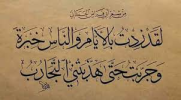 لقد زدت بالأيام والناس خبرة
وجربت حتى هذبتني التجارب